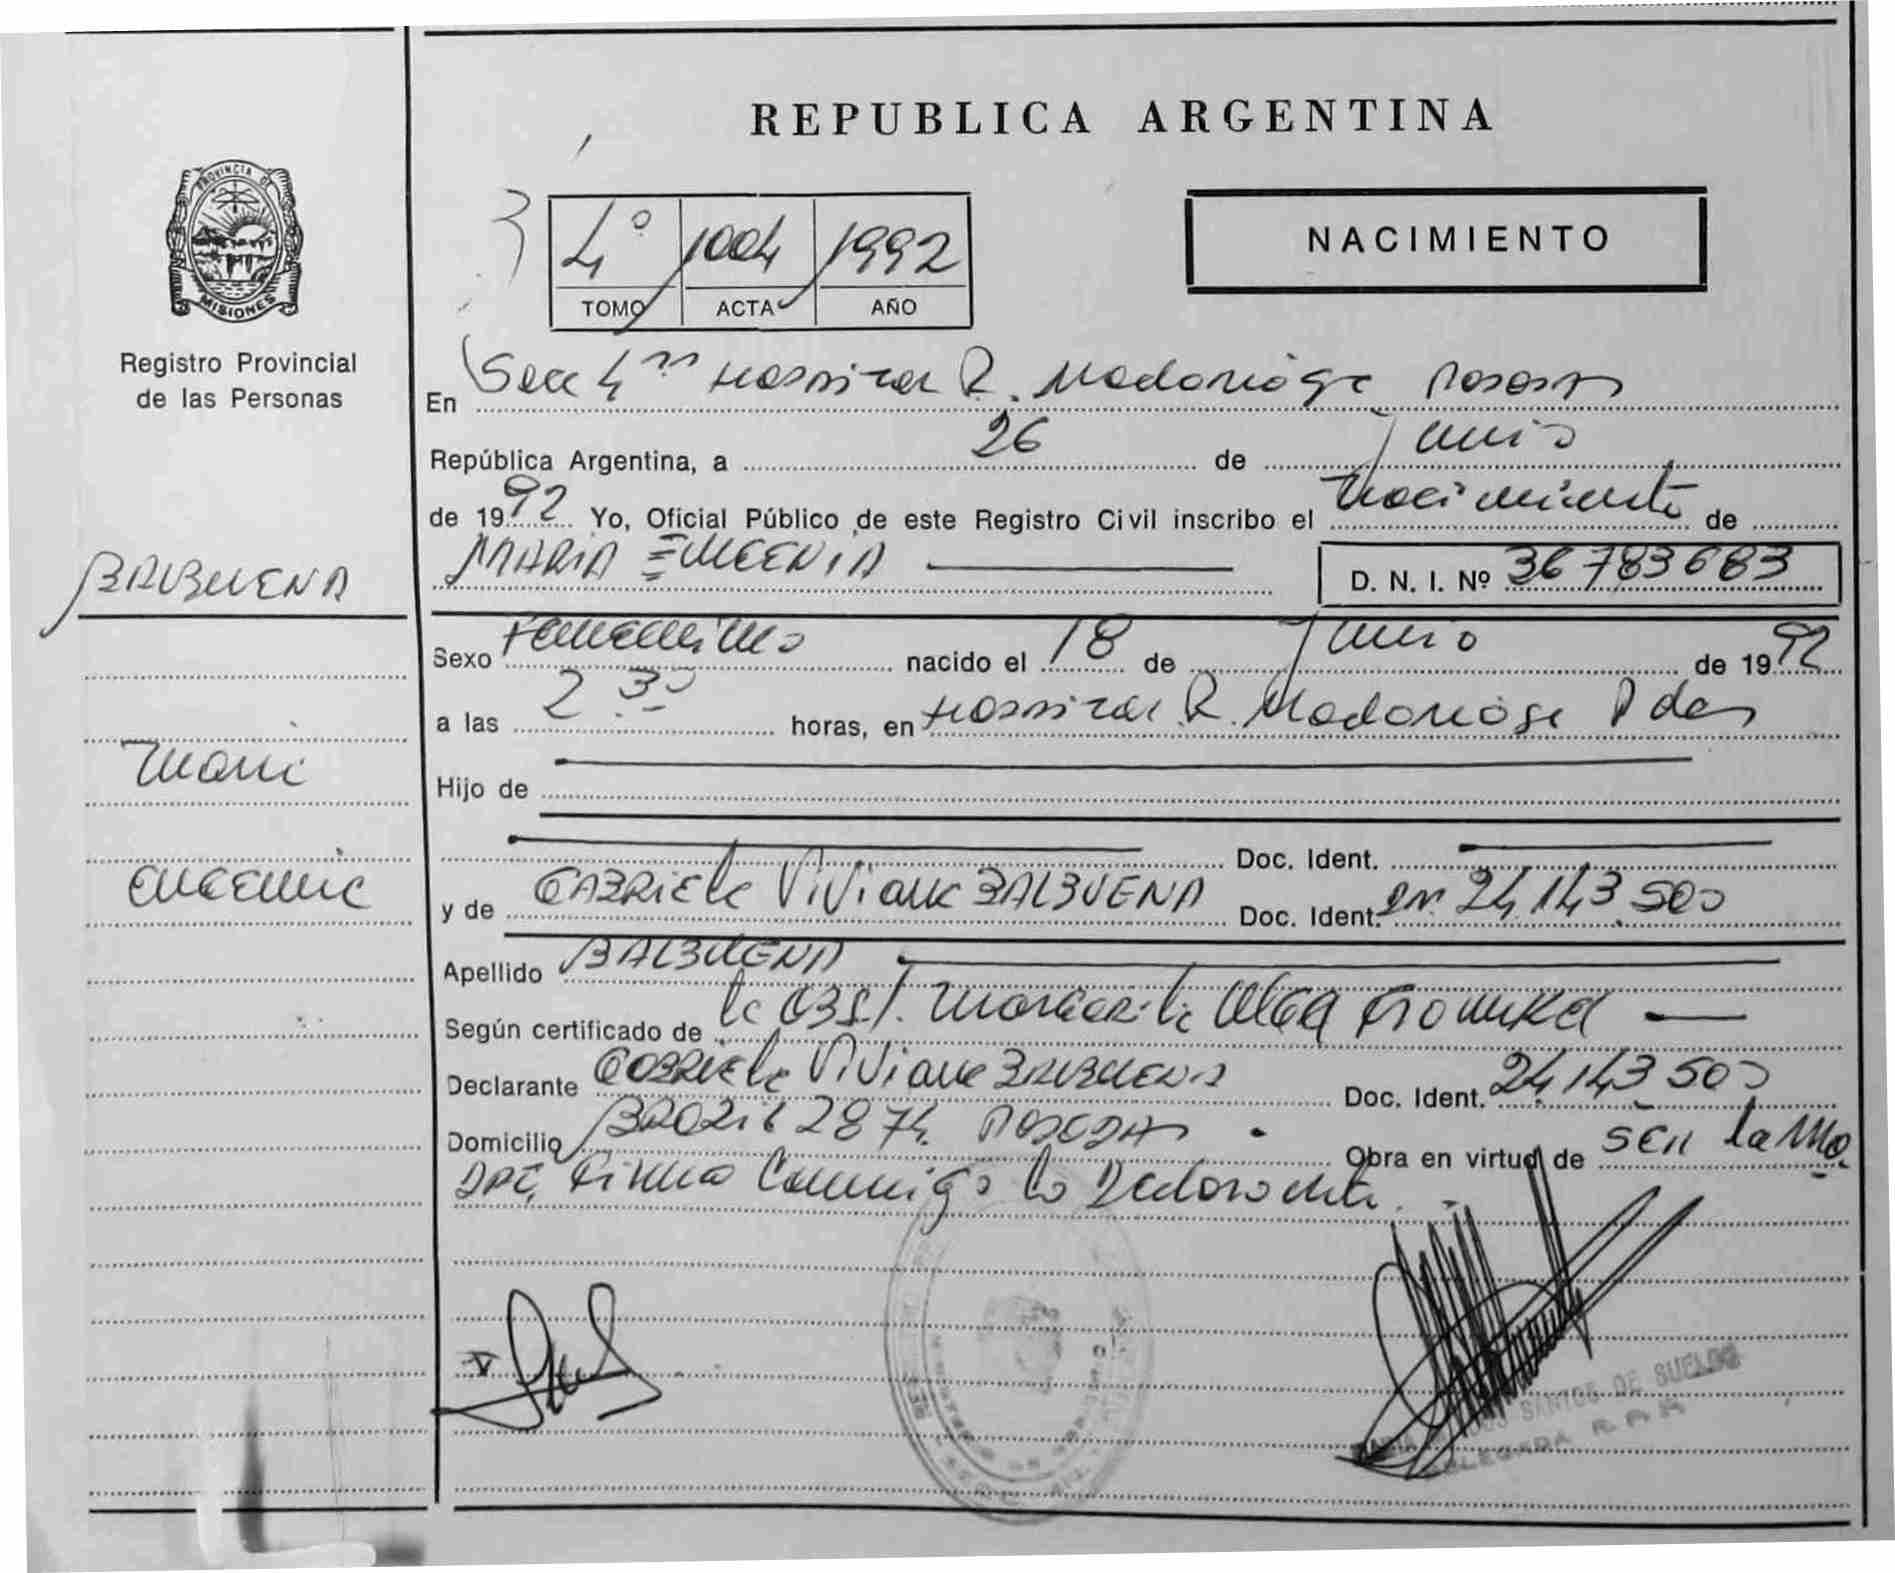 REPUBLICA ARGENTINA
PROVINCIA DE
MISIONES
Registro Provincial
de las Personas
4º 1004 1992
TOMO ACTA AÑO
NACIMIENTO
En Secc 4 Hospital R. Madariaga Posadas
República Argentina, a 26 de Junio
de 1992 Yo, Oficial Público de este Registro Civil inscribo el Nacimiento de
MARIA EUGENIA D. N. I. Nº 36783683
BALBUENA
Maria
Eugenia
Sexo Femenino nacido el 18 de Junio de 1992
a las 2.30 horas, en Hospital R. Madariaga Pdas
Hijo de
Doc. Ident.
y de GABRIELA ViViana BALBUENA Doc. Ident. 24.143.500
Apellido BALBUENA
Según certificado de la Obst. Margarita Olga
Declarante GABRIELA ViViana BALBUENA Doc. Ident. 24.143.500
Domicilio BRAZil 2874 POSADAS Obra en virtud de SER la Ma
DRE, Firma Conmigo la Declarante.
SANTOS DE SUELDO
DELEGADA R.P.P.